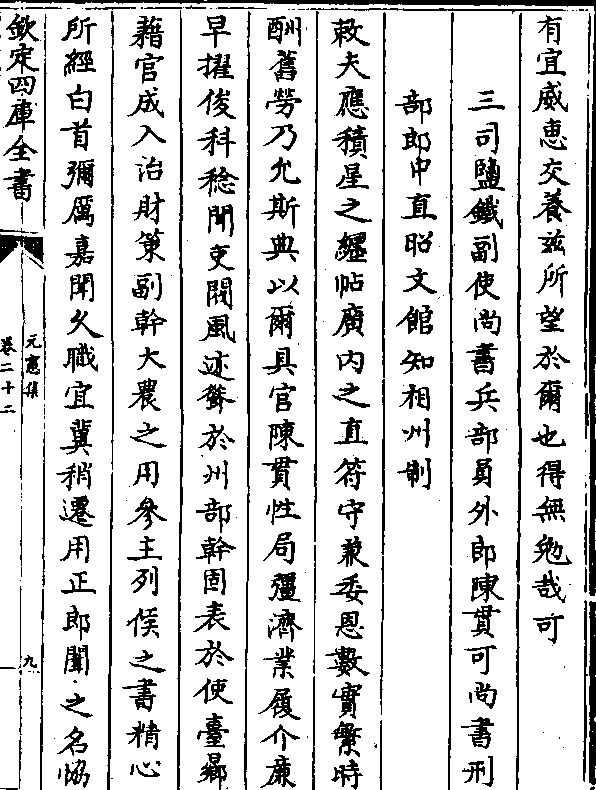 有宜威惠交養兹所望於爾也得無勉哉可
三司鹽鐵副使尚書兵部員外郎陳貫可尚書刑
部郎中直昭文館知相州制
敕夫應積星之躔帖廣内之直符守兼委恩數實繁時
酬舊勞乃允斯典以爾具官陳貫性局彊濟業履介廉
早擢俊科稔聞吏閥風迹聳於州部幹固表於使臺鄉
藉官成入治財筴副幹大農之用參主列侯之書精心
所經白首彌厲嘉聞久職宜冀稍遷用正郎闈之名恊
欽定四庫全書
元憲集
卷二十二
九